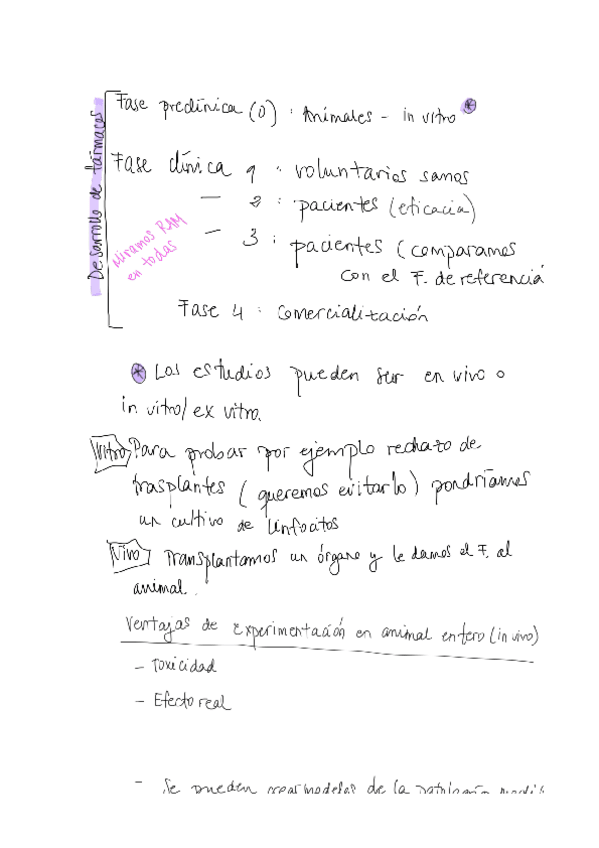 Desarrollo de fármacos
Fase preclínica (0) : Animales - in vitro *
Fase clínica 1 : voluntarios sanos
— 2 : pacientes (eficacia)
— 3 : pacientes (comparamos
con el F. de referencia
Miramos RAM
en todas
Fase 4 : Comercialización
* Los estudios pueden ser en vivo o
in vitro/ ex vitro.
Vitro Para probar por ejemplo rechazo de
trasplantes (queremos evitarlo) pondríamos
un cultivo de linfocitos
Vivo Transplantamos un órgano y le damos el F. al
animal.
Ventajas de experimentación en animal entero (in vivo)
- Toxicidad
- Efecto real
- Se pueden crear modelos de la